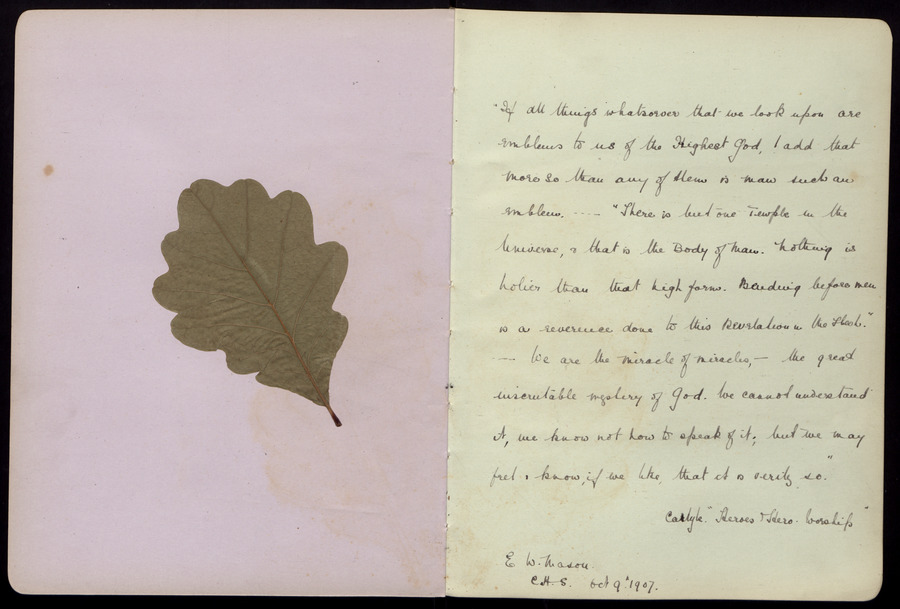 "If all things whatsoever that we look upon are
emblems to us of the Highest God, I add that
more so than any of them is man such an
emblem. ---- "There is but one Temple in the
Universe, & that is the Body of Man. Nothing is
holier than that high form. Bending before men
is a reverence done to this Revelation in the Flesh."
— We are the miracle of miracles, — the great
inscrutable mystery of God. We cannot understand
it, we know not how to speak of it; but we may
feel & know, if we like, that it is verily so."
Carlyle. "Heroes & Hero-Worship"
E W. Mason.
C.H.S. Oct 9th 1907.